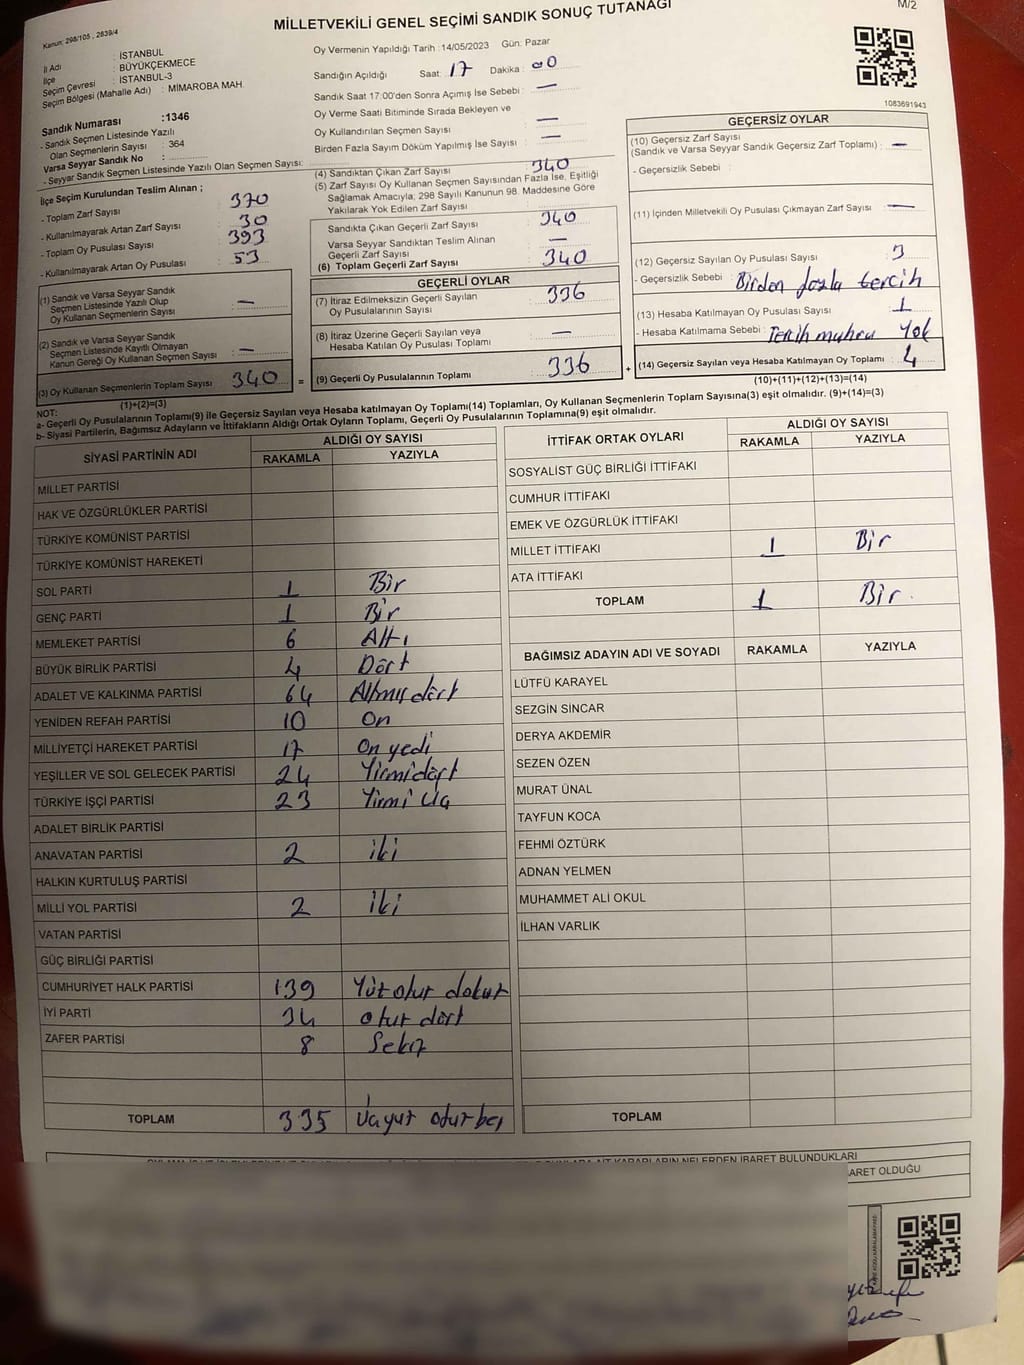 MİLLETVEKİLİ GENEL SEÇİMİ SANDIK SONUÇ TUTANAĞI
M/2
Kanun: 298/105 , 2839/4
İl Adı : İSTANBUL
İlçe : BÜYÜKÇEKMECE
Seçim Çevresi : İSTANBUL-3
Seçim Bölgesi (Mahalle Adı) : MİMAROBA MAH.
Sandık Numarası :1346
- Sandık Seçmen Listesinde Yazılı
Olan Seçmenlerin Sayısı : 364
Varsa Seyyar Sandık No :
- Seyyar Sandık Seçmen Listesinde Yazılı Olan Seçmen Sayısı:
Oy Vermenin Yapıldığı Tarih :14/05/2023 Gün: Pazar
Sandığın Açıldığı Saat: 17 Dakika : 00
Sandık Saat 17:00'den Sonra Açımış İse Sebebi : —
Oy Verme Saati Bitiminde Sırada Bekleyen ve
Oy Kullandırılan Seçmen Sayısı —
Birden Fazla Sayım Döküm Yapılmış İse Sayısı : —
1083691943
İlçe Seçim Kurulundan Teslim Alınan ;
- Toplam Zarf Sayısı 370
- Kullanılmayarak Artan Zarf Sayısı : 30
- Toplam Oy Pusulası Sayısı 393
- Kullanılmayarak Artan Oy Pusulası : 53
(1) Sandık ve Varsa Seyyar Sandık
Seçmen Listesinde Yazılı Olup
Oy Kullanan Seçmenlerin Sayısı : —
(2) Sandık ve Varsa Seyyar Sandık
Seçmen Listesinde Kayıtlı Olmayan
Kanun Gereği Oy Kullanan Seçmen Sayısı : —
(3) Oy Kullanan Seçmenlerin Toplam Sayısı : 340
(1)+(2)=(3)
(4) Sandıktan Çıkan Zarf Sayısı : 340
(5) Zarf Sayısı Oy Kullanan Seçmen Sayısından Fazla İse, Eşitliği
Sağlamak Amacıyla; 298 Sayılı Kanunun 98. Maddesine Göre
Yakılarak Yok Edilen Zarf Sayısı :
Sandıkta Çıkan Geçerli Zarf Sayısı : 340
Varsa Seyyar Sandıktan Teslim Alınan
Geçerli Zarf Sayısı : —
(6) Toplam Geçerli Zarf Sayısı : 340
GEÇERLİ OYLAR
(7) İtiraz Edilmeksizin Geçerli Sayılan
Oy Pusulalarının Sayısı : 336
(8) İtiraz Üzerine Geçerli Sayılan veya
Hesaba Katılan Oy Pusulası Toplamı : —
= (9) Geçerli Oy Pusulalarının Toplamı : 336 +
GEÇERSİZ OYLAR
(10) Geçersiz Zarf Sayısı
(Sandık ve Varsa Seyyar Sandık Geçersiz Zarf Toplamı) : —
- Geçersizlik Sebebi :
(11) İçinden Milletvekili Oy Pusulası Çıkmayan Zarf Sayısı : —
(12) Geçersiz Sayılan Oy Pusulası Sayısı : 3
- Geçersizlik Sebebi : Birden fazla tercih
(13) Hesaba Katılmayan Oy Pusulası Sayısı : 1
- Hesaba Katılmama Sebebi : Tercih muhru Yok
(14) Geçersiz Sayılan veya Hesaba Katılmayan Oy Toplamı : 4
(10)+(11)+(12)+(13)=(14)
NOT:
a- Geçerli Oy Pusulalarının Toplamı(9) ile Geçersiz Sayılan veya Hesaba katılmayan Oy Toplamı(14) Toplamları, Oy Kullanan Seçmenlerin Toplam Sayısına(3) eşit olmalıdır. (9)+(14)=(3)
b- Siyasi Partilerin, Bağımsız Adayların ve İttifakların Aldığı Ortak Oyların Toplamı, Geçerli Oy Pusulalarının Toplamına(9) eşit olmalıdır.
SİYASİ PARTİNİN ADI ALDIĞI OY SAYISI
RAKAMLA YAZIYLA
MİLLET PARTİSİ
HAK VE ÖZGÜRLÜKLER PARTİSİ
TÜRKİYE KOMÜNİST PARTİSİ
TÜRKİYE KOMÜNİST HAREKETİ
SOL PARTİ 1 Bir
GENÇ PARTİ 1 Bir
MEMLEKET PARTİSİ 6 Altı
BÜYÜK BİRLİK PARTİSİ 4 Dört
ADALET VE KALKINMA PARTİSİ 64 Altmışdört
YENİDEN REFAH PARTİSİ 10 On
MİLLİYETÇİ HAREKET PARTİSİ 17 On yedi
YEŞİLLER VE SOL GELECEK PARTİSİ 24 Yirmidört
TÜRKİYE İŞÇİ PARTİSİ 23 Yirmi üç
ADALET BİRLİK PARTİSİ
ANAVATAN PARTİSİ 2 iki
HALKIN KURTULUŞ PARTİSİ
MİLLİ YOL PARTİSİ 2 iki
VATAN PARTİSİ
GÜÇ BİRLİĞİ PARTİSİ
CUMHURİYET HALK PARTİSİ 139 Yüz otuz dokuz
İYİ PARTİ 34 otuz dört
ZAFER PARTİSİ 8 Sekiz
TOPLAM 335 Üçyüz otuzbeş
İTTİFAK ORTAK OYLARI ALDIĞI OY SAYISI
RAKAMLA YAZIYLA
SOSYALİST GÜÇ BİRLİĞİ İTTİFAKI
CUMHUR İTTİFAKI
EMEK VE ÖZGÜRLÜK İTTİFAKI
MİLLET İTTİFAKI 1 Bir
ATA İTTİFAKI
TOPLAM 1 Bir.
BAĞIMSIZ ADAYIN ADI VE SOYADI RAKAMLA YAZIYLA
LÜTFÜ KARAYEL
SEZGİN SİNCAR
DERYA AKDEMİR
SEZEN ÖZEN
MURAT ÜNAL
TAYFUN KOCA
FEHMİ ÖZTÜRK
ADNAN YELMEN
MUHAMMET ALİ OKUL
İLHAN VARLIK
TOPLAM
KARARLARIN NELERDEN İBARET BULUNDUKLARI
ARET OLDUĞU